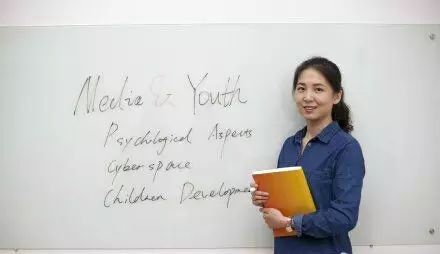 Media & Youth
Psychological Aspects
Cyberspace
Children Developmen